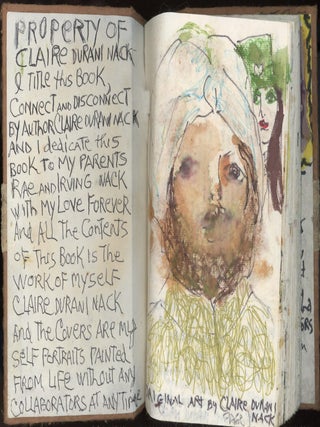 PROPERTY OF
CLAIRE DURANI NACK
I TITLE this BOOK,
CONNECT AND DISCONNECT
BY AUTHOR CLAIRE DURANI NACK
AND I DEDICATE this
BOOK TO MY PARENTS
RAE AND IRVING NACK
WITH MY LOVE FOREVER
And ALL the CONTENTS
OF THIS BOOK IS THE
WORK OF MYSELF
CLAIRE DURANI NACK
AND THE COVERS ARE MY
SELF PORTRAITS PAINTED
FROM LIFE WITHOUT ANY
COLLABORATORS AT ANYTIME
ORIGINAL ART BY CLAIRE DURANI
NACK